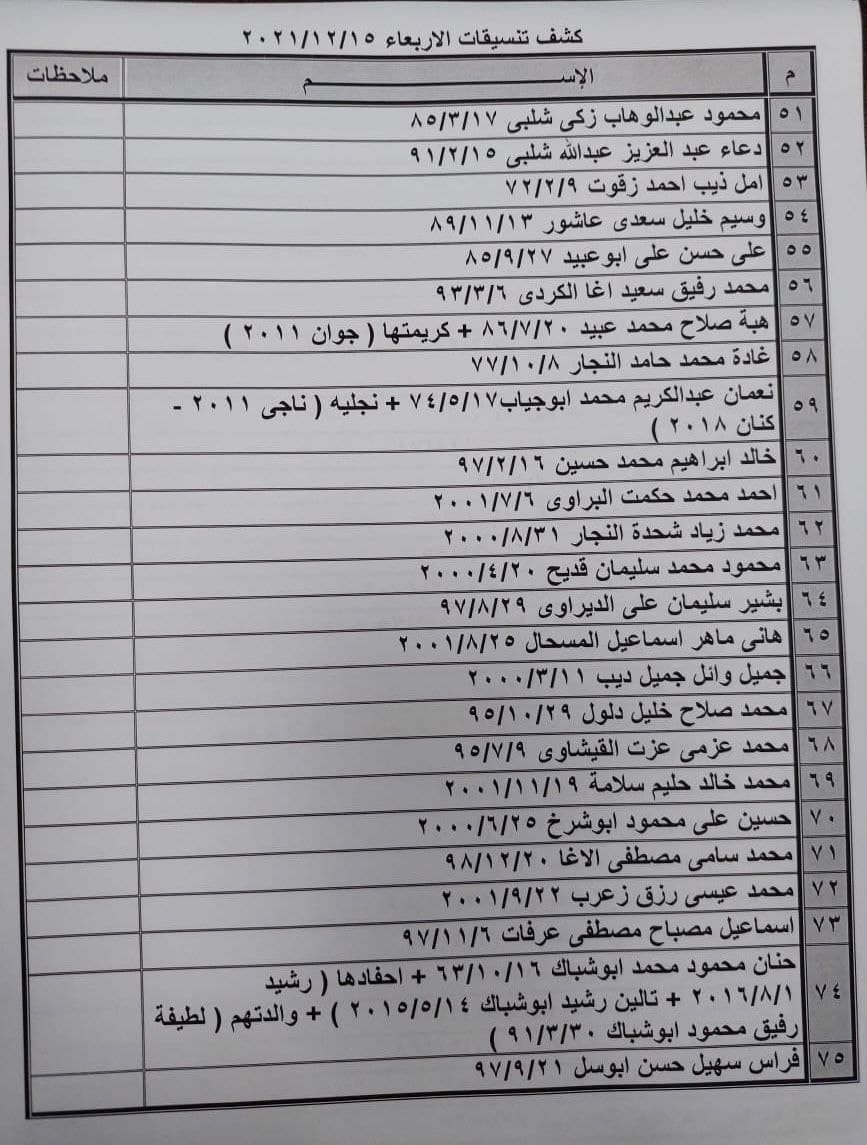 كشف تنسيقات الاربعاء ٢٠٢١/١٢/١٥
م الإســـــــــم ملاحظات
٥١ محمود عبدالوهاب زكى شلبى ٨٥/٣/١٧
٥٢ دعاء عبد العزيز عبدالله شلبى ٩١/٢/١٥
٥٣ امل ذيب احمد زقوت ٧٢/٢/٩
٥٤ وسيم خليل سعدى عاشور ٨٩/١١/١٣
٥٥ على حسن على ابو عبيد ٨٥/٩/٢٧
٥٦ محمد رفيق سعيد اغا الكردى ٩٣/٣/٦
٥٧ هبة صلاح محمد عبيد ٨٦/٧/٢٠ + كريمتها ( جوان ٢٠١١ )
٥٨ غادة محمد حامد النجار ٧٧/١٠/٨
٥٩ نعمان عبدالكريم محمد ابوجياب٧٤/٥/١٧ + نجليه ( ناجى ٢٠١١ -
كنان ٢٠١٨ )
٦٠ خالد ابراهيم محمد حسين ٩٧/٢/١٦
٦١ احمد محمد حكمت البراوى ٢٠٠١/٧/٦
٦٢ محمد زياد شحدة النجار ٢٠٠٠/٨/٣١
٦٣ محمود محمد سليمان قديح ٢٠٠٠/٤/٢٠
٦٤ بشير سليمان على الديراوى ٩٧/٨/٢٩
٦٥ هانى ماهر اسماعيل المسحال ٢٠٠١/٨/٢٥
٦٦ جميل وائل جميل ديب ٢٠٠٠/٣/١١
٦٧ محمد صلاح خليل دلول ٩٥/١٠/٢٩
٦٨ محمد عزمى عزت القيشاوى ٩٥/٧/٩
٦٩ محمد خالد حليم سلامة ٢٠٠١/١١/١٩
٧٠ حسين على محمود ابوشرخ ٢٠٠٠/٦/٢٥
٧١ محمد سامى مصطفى الاغا ٩٨/١٢/٢٠
٧٢ محمد عيسى رزق زعرب ٢٠٠١/٩/٢٢
٧٣ اسماعيل مصباح مصطفى عرفات ٩٧/١١/٦
٧٤ حنان محمود محمد ابوشباك ٦٣/١٠/١٦ + احفادها ( رشيد
٢٠١٦/٨/١ + تالين رشيد ابوشباك ٢٠١٥/٥/١٤ ) + والدتهم ( لطيفة
رفيق محمود ابوشباك ٩١/٣/٣٠ )
٧٥ فراس سهيل حسن ابوسل ٩٧/٩/٢١